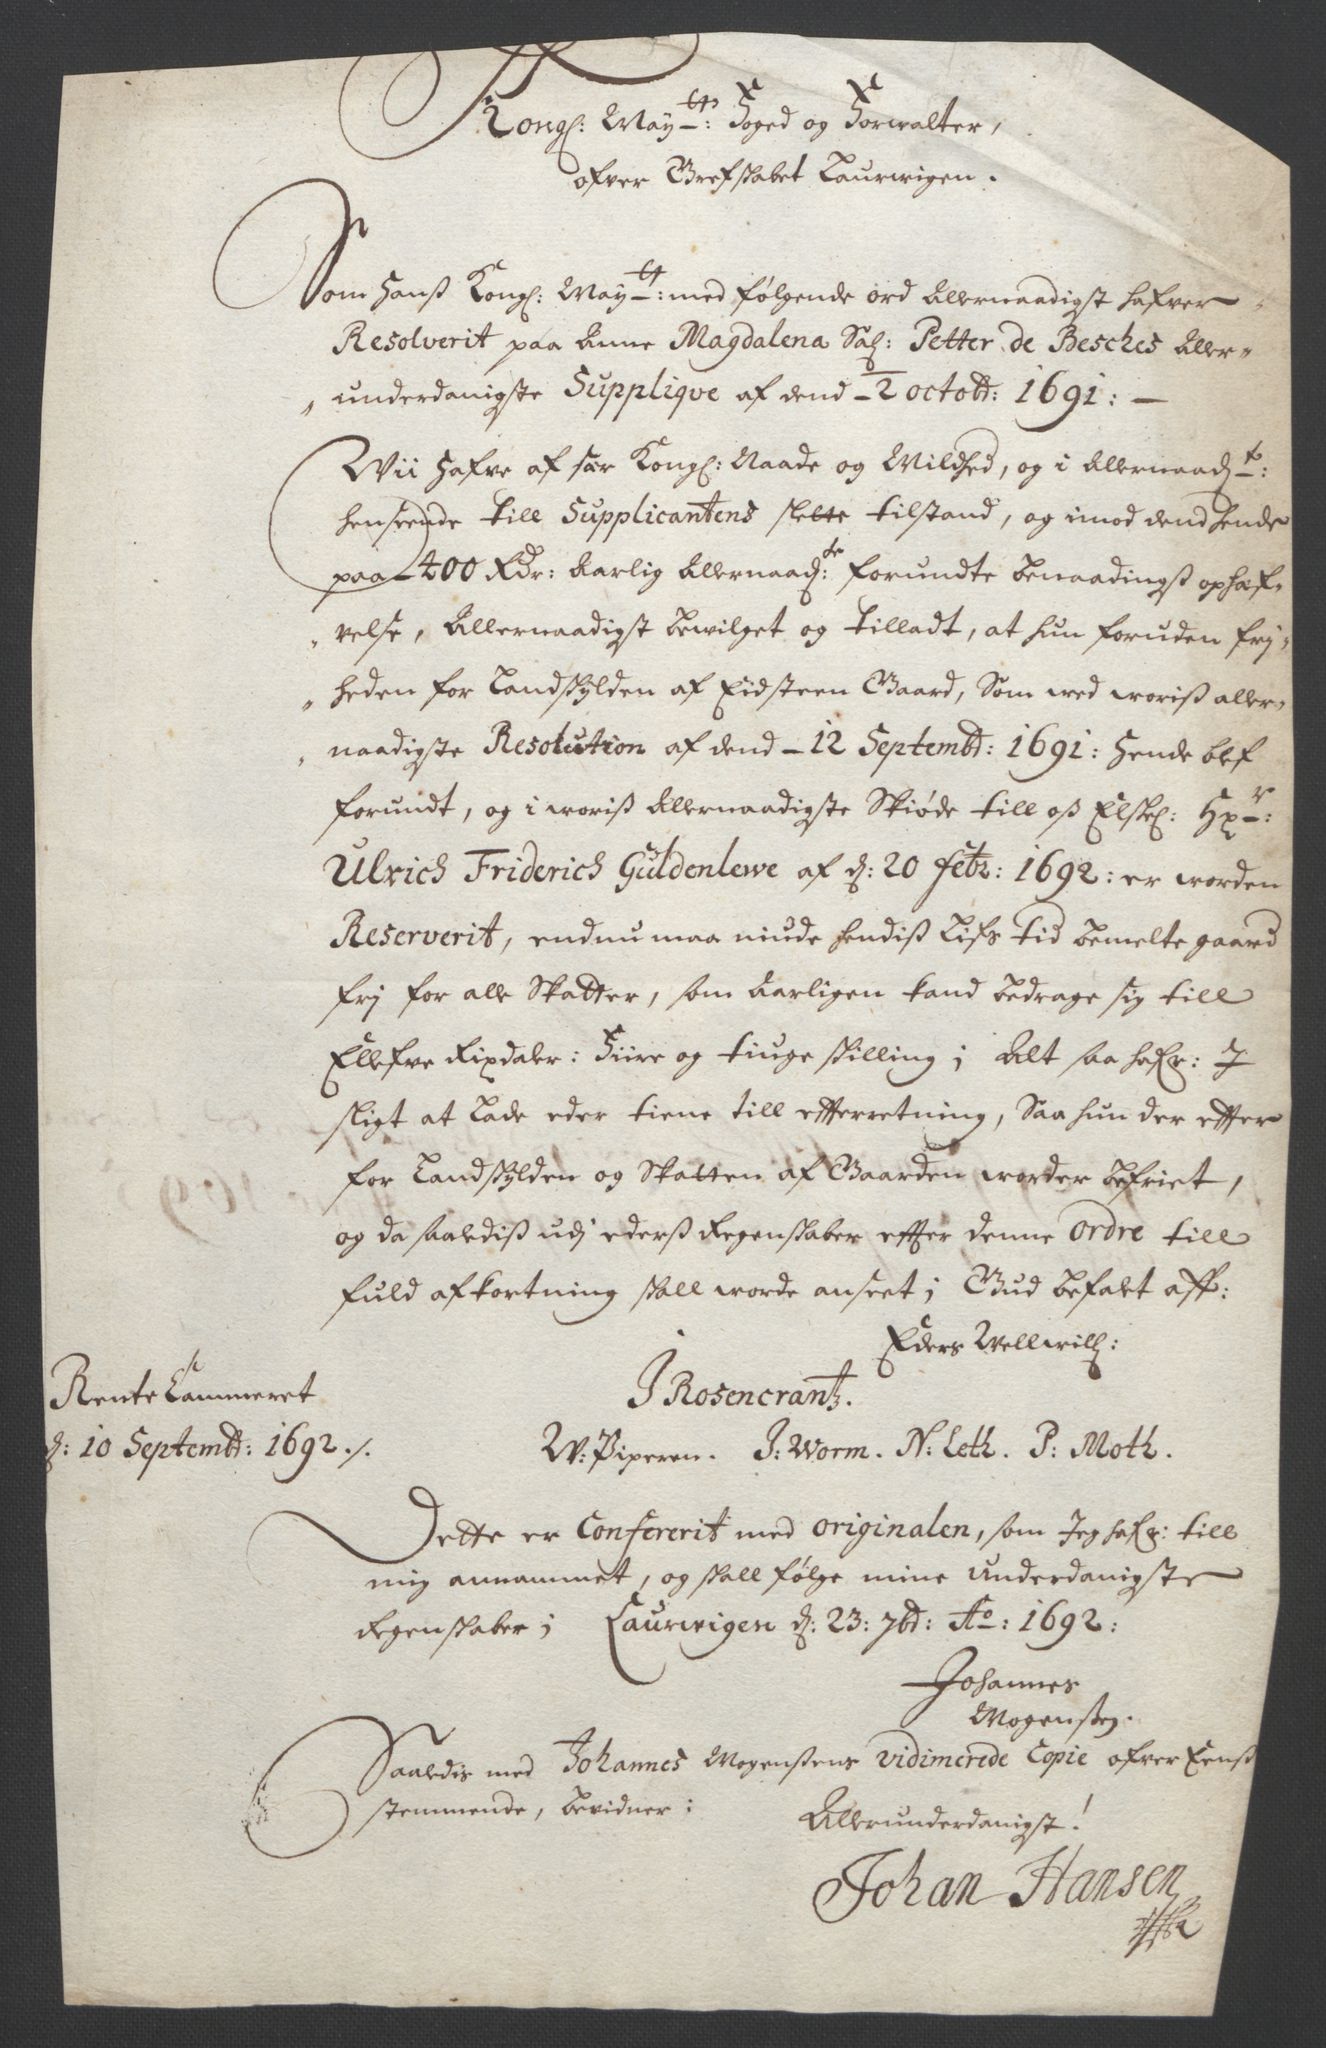 Kongl: May.tts: Foged og Forwalter,
ofver Grefskabet Laurwigen.
Som Hans Kongl: May.tt: med følgende ord Allernaadigst hafver
Resolverit paa Anne Magdalena Sal: Petter de Besches Aller=
underdanigste Supplique af dend 2 octobr: 1691: —
Wii Hafve af sær Kongl: Naade og Mildhed, og i Allernaad.t:
henseende till Supplicantens slette tilstand, og imod dend hende
paa 400 Rdr: Aarlig Allernaad:te forundte benaadings ophæf=
velse, Allernaadigst bevilget og tilladt, at hun foruden frj=
heden for Landskylden af Eidsteen Gaard, Som ved woris aller=
naadigste Resolution af dend 12 Septembr: 1691: Hende blef
forundt, og i woris Allernaadigste Skiøde till os Elskel: Hr:
Ulrich Friderich Guldenlewe af d: 20 febr: 1692: er worden
Reserverit, endnu maa niude hendis Lifs tid bemelte gaard
frj for alle Skatter, som Aarligen kand bedrage sig till
Ellefve Rixdaler: Fiire og tiuge skilling; Alt saa hafr: I
sligt at Lade eder tiene till efterretning, Saa hun der efter
for Landskylden og Skatten af Gaarden worder befriet,
og da saaledis udj eders Regenskaber efter denne Ordre till
fuld afkortning skall worde anseet; Gud befalet aff:
Eders Wellwill:
J Rosencrantz.
Rente Cammeret
d: 10 Septembr: 1692 ./.
W: Piperen. J: Worm. N: Leth. P: Moth.
Dette er Confererit med originalen, som Jeg hafr: till
mig annammet, og skall følge mine underdanigste
Regenskaber; Laurwigen d: 23: 7br: Ao: 1692:
Johannes
Mogensen.
Saaledis med Johannes Mogensens vidimerede Copie ofver Eens
stemmende, bevidner:
Allerunderdanigst!
Johan Hansen